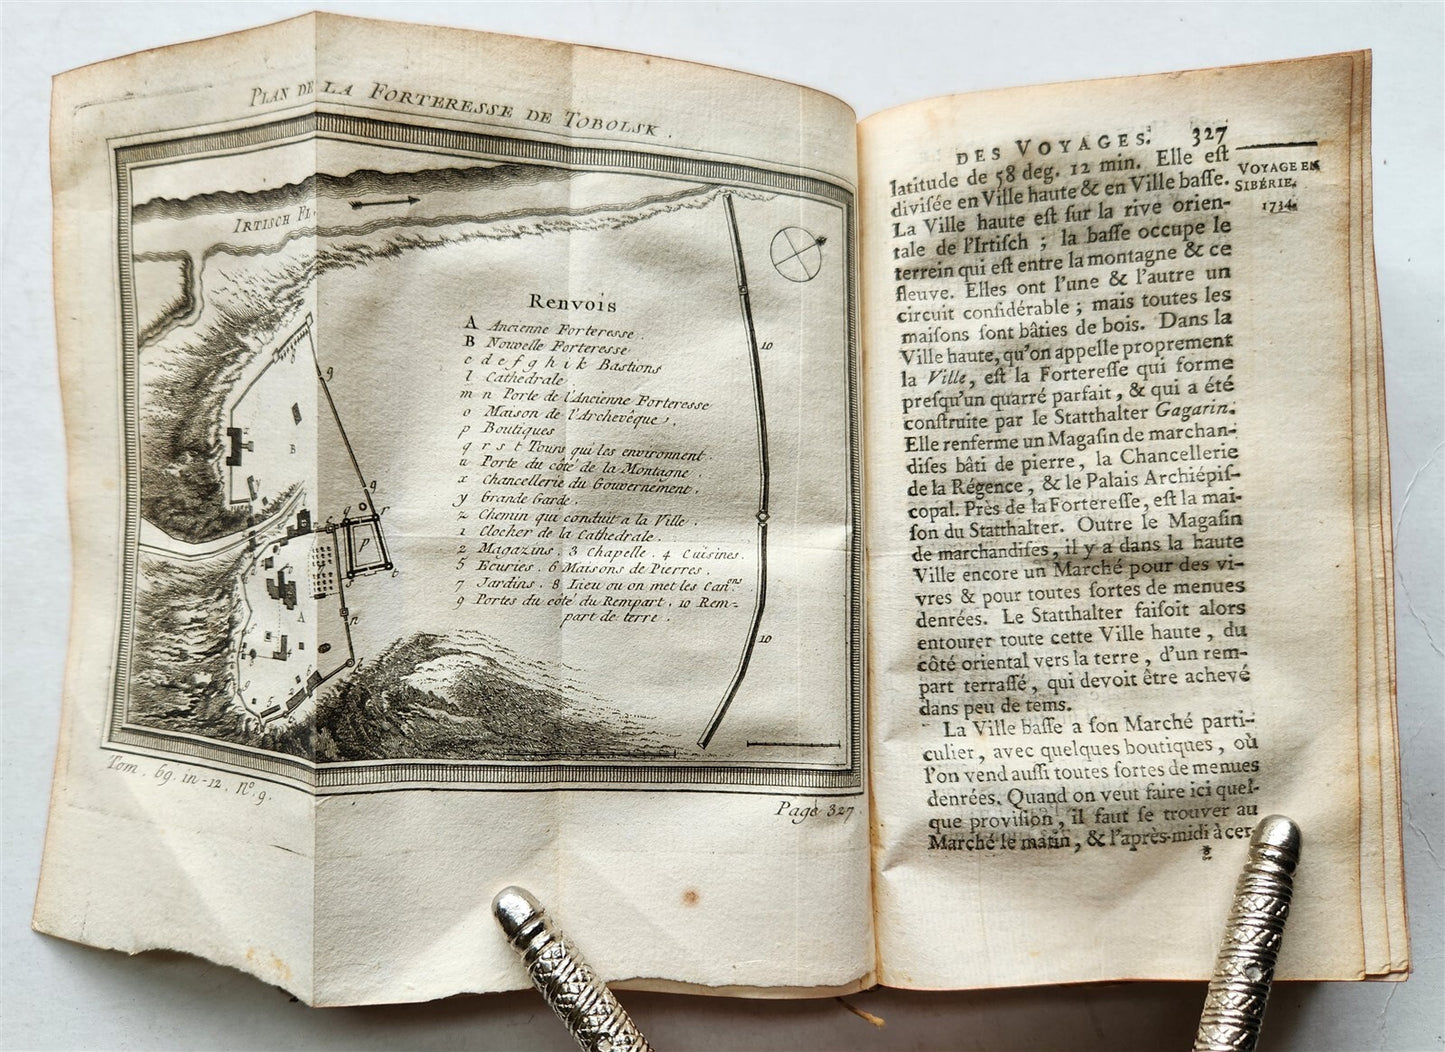 PLAN DE LA FORTERESSE DE TOBOLSK.
IRTISCH FL.
Renvois
A Ancienne Forteresse.
B Nouvelle Forteresse
c d e f g h i k Bastions
l Cathédrale
m n Porte de l'Ancienne Forteresse
o Maison de l'Archevêque.
p Boutiques
q r s t Tours qui les environnent.
u Porte du côté de la Montagne.
x Chancellerie du Gouvernement.
y Grande Garde.
z Chemin qui conduit a la Ville.
1 Clocher de la Cathédrale.
2 Magazins. 3 Chapelle. 4 Cuisines.
5 Ecuries. 6 Maisons de Pierres.
7 Jardins. 8 Lieu ou on met les Canons.
9 Portes du côté du Rempart. 10 Rem-
part de terre.
10
10
B
A
p
Tom. 69. in-12. N.° 9.
Page 327
DES VOYAGES. 327
latitude de 58 deg. 12 min. Elle est
divisée en Ville haute & en Ville basse.
La Ville haute est sur la rive orien-
tale de l'Irtisch ; la basse occupe le
terrein qui est entre la montagne & ce
fleuve. Elles ont l'une & l'autre un
circuit considérable ; mais toutes les
maisons sont bâties de bois. Dans la
Ville haute, qu'on appelle proprement
la Ville, est la Forteresse qui forme
presqu'un quarré parfait, & qui a été
construite par le Statthalter Gagarin.
Elle renferme un Magasin de marchan-
dises bâti de pierre, la Chancellerie
de la Régence, & le Palais Archiépis-
copal. Près de la Forteresse, est la mai-
son du Statthalter. Outre le Magasin
de marchandises, il y a dans la haute
Ville encore un Marché pour des vi-
vres & pour toutes sortes de menues
denrées. Le Statthalter faisoit alors
entourer toute cette Ville haute, du
côté oriental vers la terre, d'un rem-
part terrassé, qui devoit être achevé
dans peu de tems.
La Ville basse a son Marché parti-
culier, avec quelques boutiques, où
l'on vend aussi toutes sortes de menues
denrées. Quand on veut faire ici quel-
que provision, il faut se trouver au
Marché le matin, & l'après-midi à cer-
VOYAGE EN
SIBÉRIE.
1734.